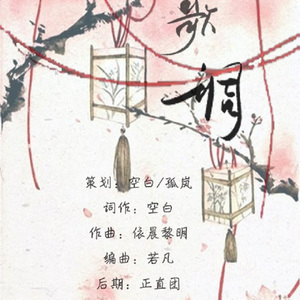 歌
策划：空白/孤岚
词作：空白
作曲：依晨黎明
编曲：若凡
后期：正直团